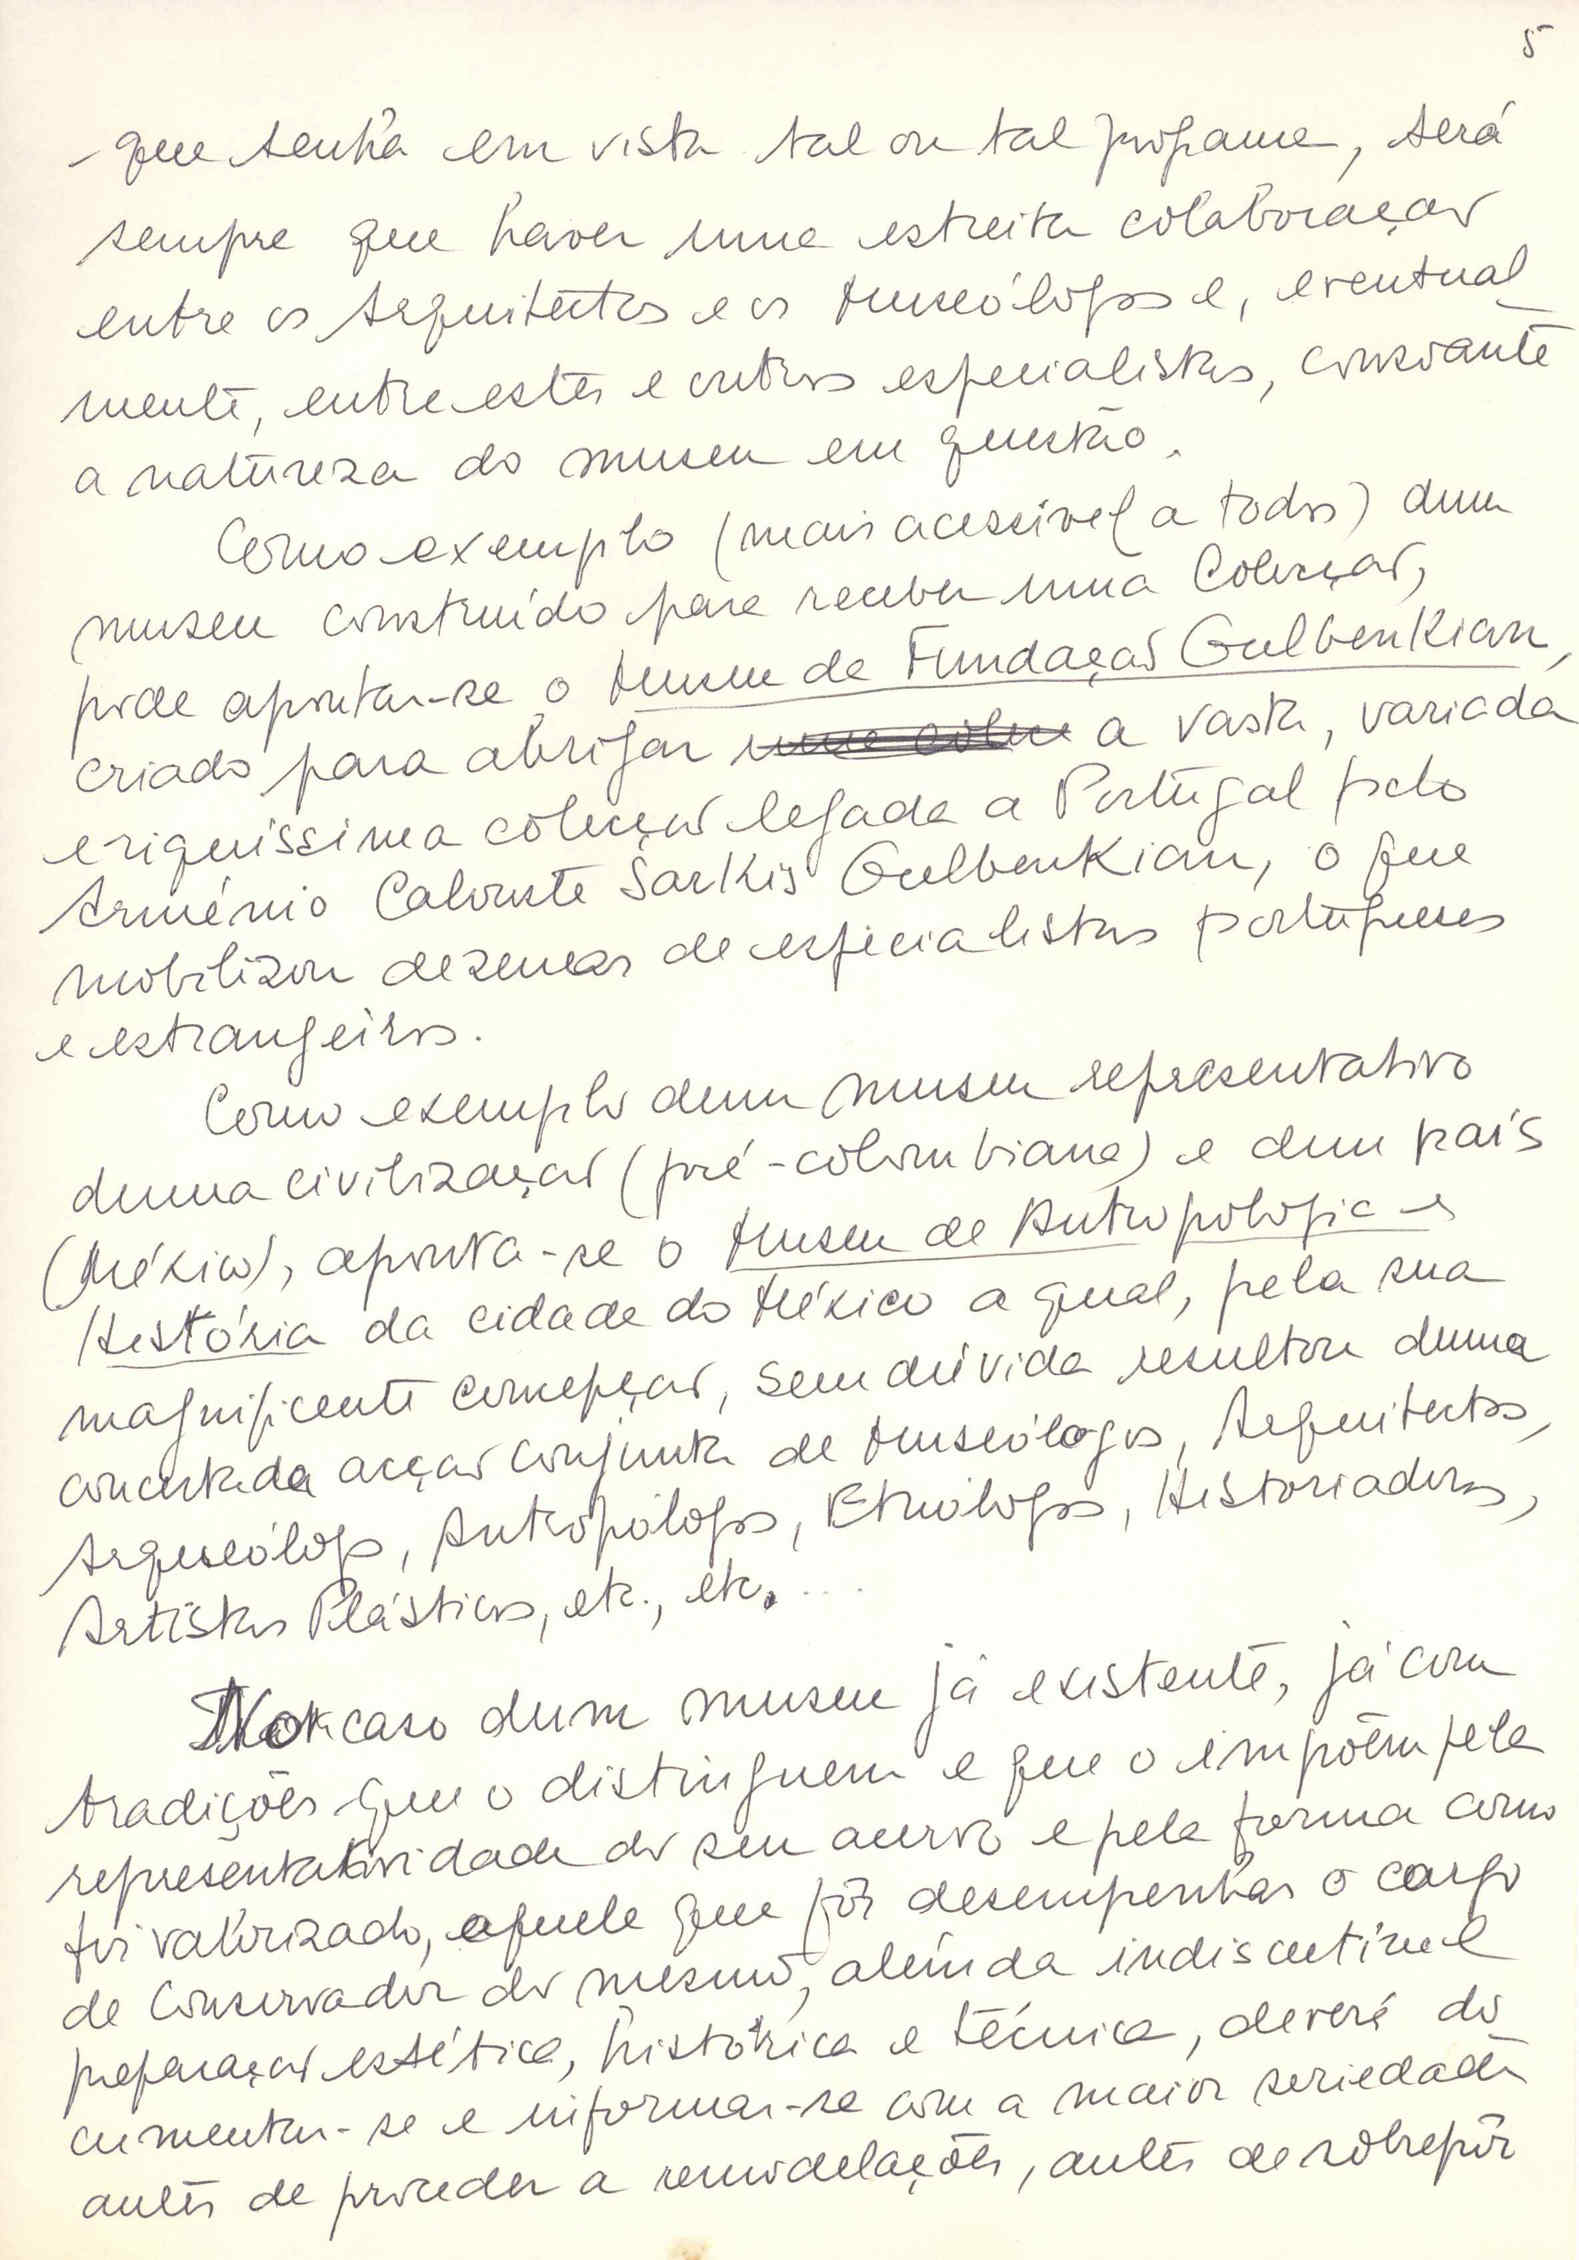 5
- que tenha em vista tal ou tal programa, terá
sempre que haver uma estreita colaboração
entre os Arquitectos e os Museólogos e, eventual-
mente, entre estes e outros especialistas, consoante
a natureza do museu em questão.
Como exemplo (mais acessível a todos) dum
museu construído para receber uma Colecção,
pode apontar-se o Museu da Fundação Gulbenkian,
criado para abrigar uma colec a vasta, variada
e riquíssima colecção legada a Portugal pelo
Arménio Calouste Sarkis Gulbenkian, o que
mobilizou dezenas de especialistas portugueses
e estrangeiros.
Como exemplo dum museu representativo
duma civilização (pré-colombiana) e dum país
(México), aponta-se o Museu de Antropologia e
História da cidade do México a qual, pela sua
magnificente concepção, sem dúvida resultou duma
concertada acção conjunta de Museólogos, Arquitectos,
Arqueólogos, Antropólogos, Etnólogos, Historiadores,
Artistas Plásticos, etc., etc. ...
No caso dum museu já existente, já com
tradições que o distinguem e que o impõem pela
representatividade do seu acervo e pela forma como
foi valorizado, aquele que fôr desempenhar o cargo
de Conservador do mesmo, além da indiscutível
preparação estética, histórica e técnica, deverá do
cumentar-se e informar-se com a maior seriedade
antes de proceder a remodelações, antes de sobrepôr